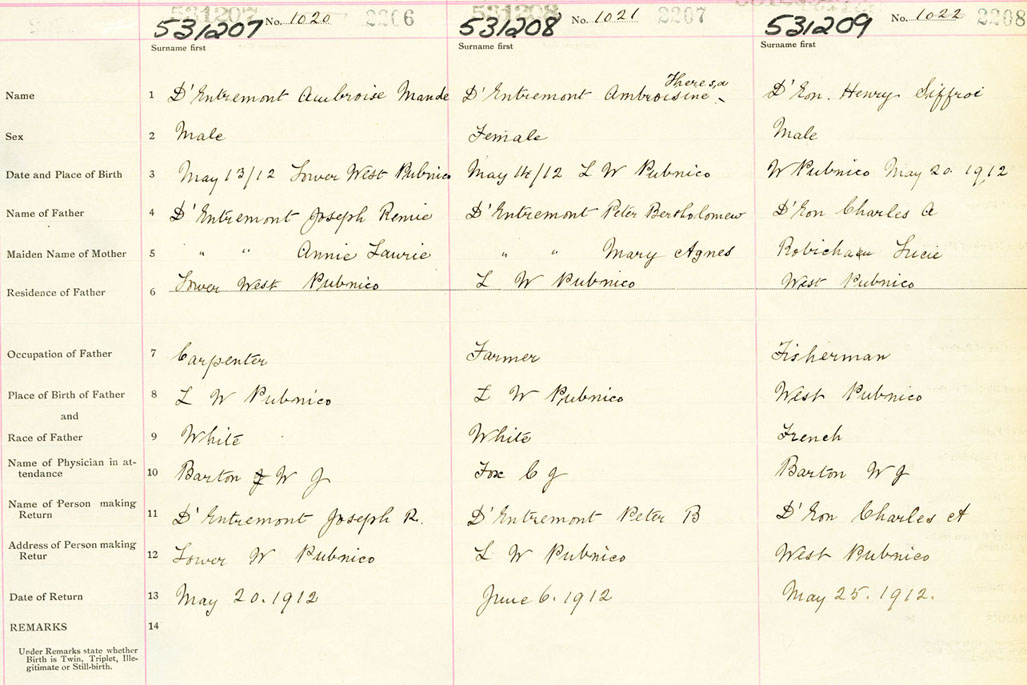 531207 No. 1020 2206 531208 No. 1021 2207 531209 No. 1022 2208
Surname first Surname first Surname first
Theresa
Name 1 D'Entremont Ambroise Mande D'Entremont Ambroisine D'Eon. Henry Siffroi
Sex 2 Male Female Male
Date and Place of Birth 3 May 13/12 Lower West Pubnico May 14/12 L W Pubnico W Pubnico May 20 1912
Name of Father 4 D'Entremont Joseph Remie D'Entremont Peter Bertholomew D'Eon Charles A
Maiden Name of Mother 5 " " Annie Laurie " " Mary Agnes Robichau Lucie
Residence of Father 6 Lower West Pubnico L W Pubnico West Pubnico
Occupation of Father 7 Carpenter Farmer Fisherman
Place of Birth of Father 8 L W Pubnico L W Pubnico West Pubnico
and
Race of Father 9 White White French
Name of Physician in at-
tendance 10 Barton W J Fox C J Barton W J
Name of Person making
Return 11 D'Entremont Joseph R. D'Entremont Peter B D'Eon Charles A
Address of Person making
Retur 12 Lower W Pubnico L W Pubnico West Pubnico
Date of Return 13 May 20. 1912 June 6. 1912 May 25. 1912.
REMARKS 14
Under Remarks state whether
Birth is Twin, Triplet, Ille-
gitimate or Still-birth.